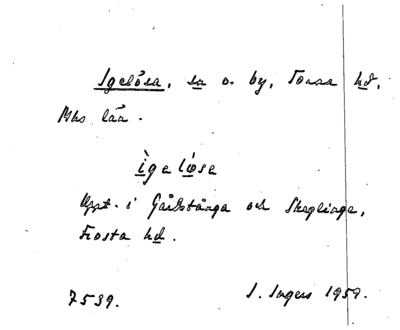 Igelösa, sn o. by, Torna hd,
Mhs län.
ìge lö́se
Uppt. i Gårdstånga och Skeglinge,
Frosta hd.
7539. I. Ingers 1959.